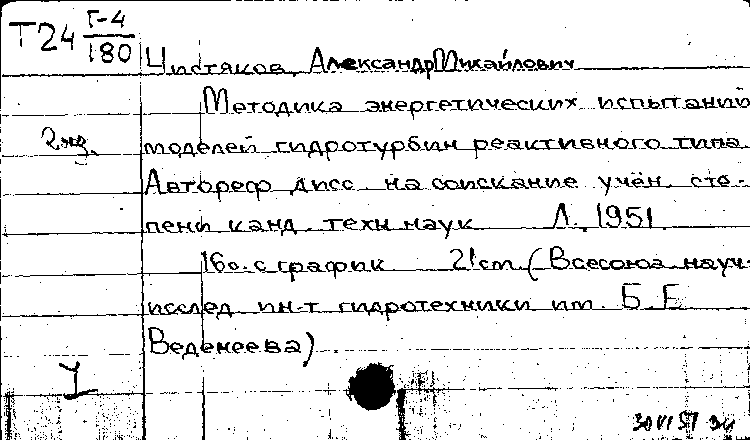 Т24 Г-4
180
Чистяков, Александр Михайлович
Методика энергетических испытаний
моделей гидротурбин реактивного типа
Автореф дисс на соискание учён. сте-
пени канд техн наук Л. 1951
16 с. с график 21 cm (Всесоюз науч-
исслед ин-т гидротехники им. Б. Е
Веденеева)
30 VI 51